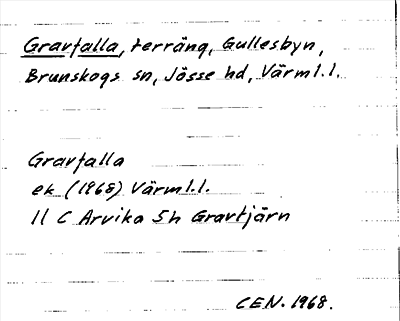 Gravfalla, terräng, Gullesbyn,
Brunskogs sn, Jösse hd, Värml.l.
Gravfalla
ek (1968) Värml.l.
11 C Arvika 5h Gravtjärn
CEN. 1968.